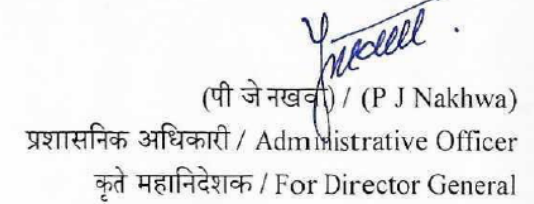 (पी जे नखवा) / (P J Nakhwa)
प्रशासनिक अधिकारी / Administrative Officer
कृते महानिदेशक / For Director General